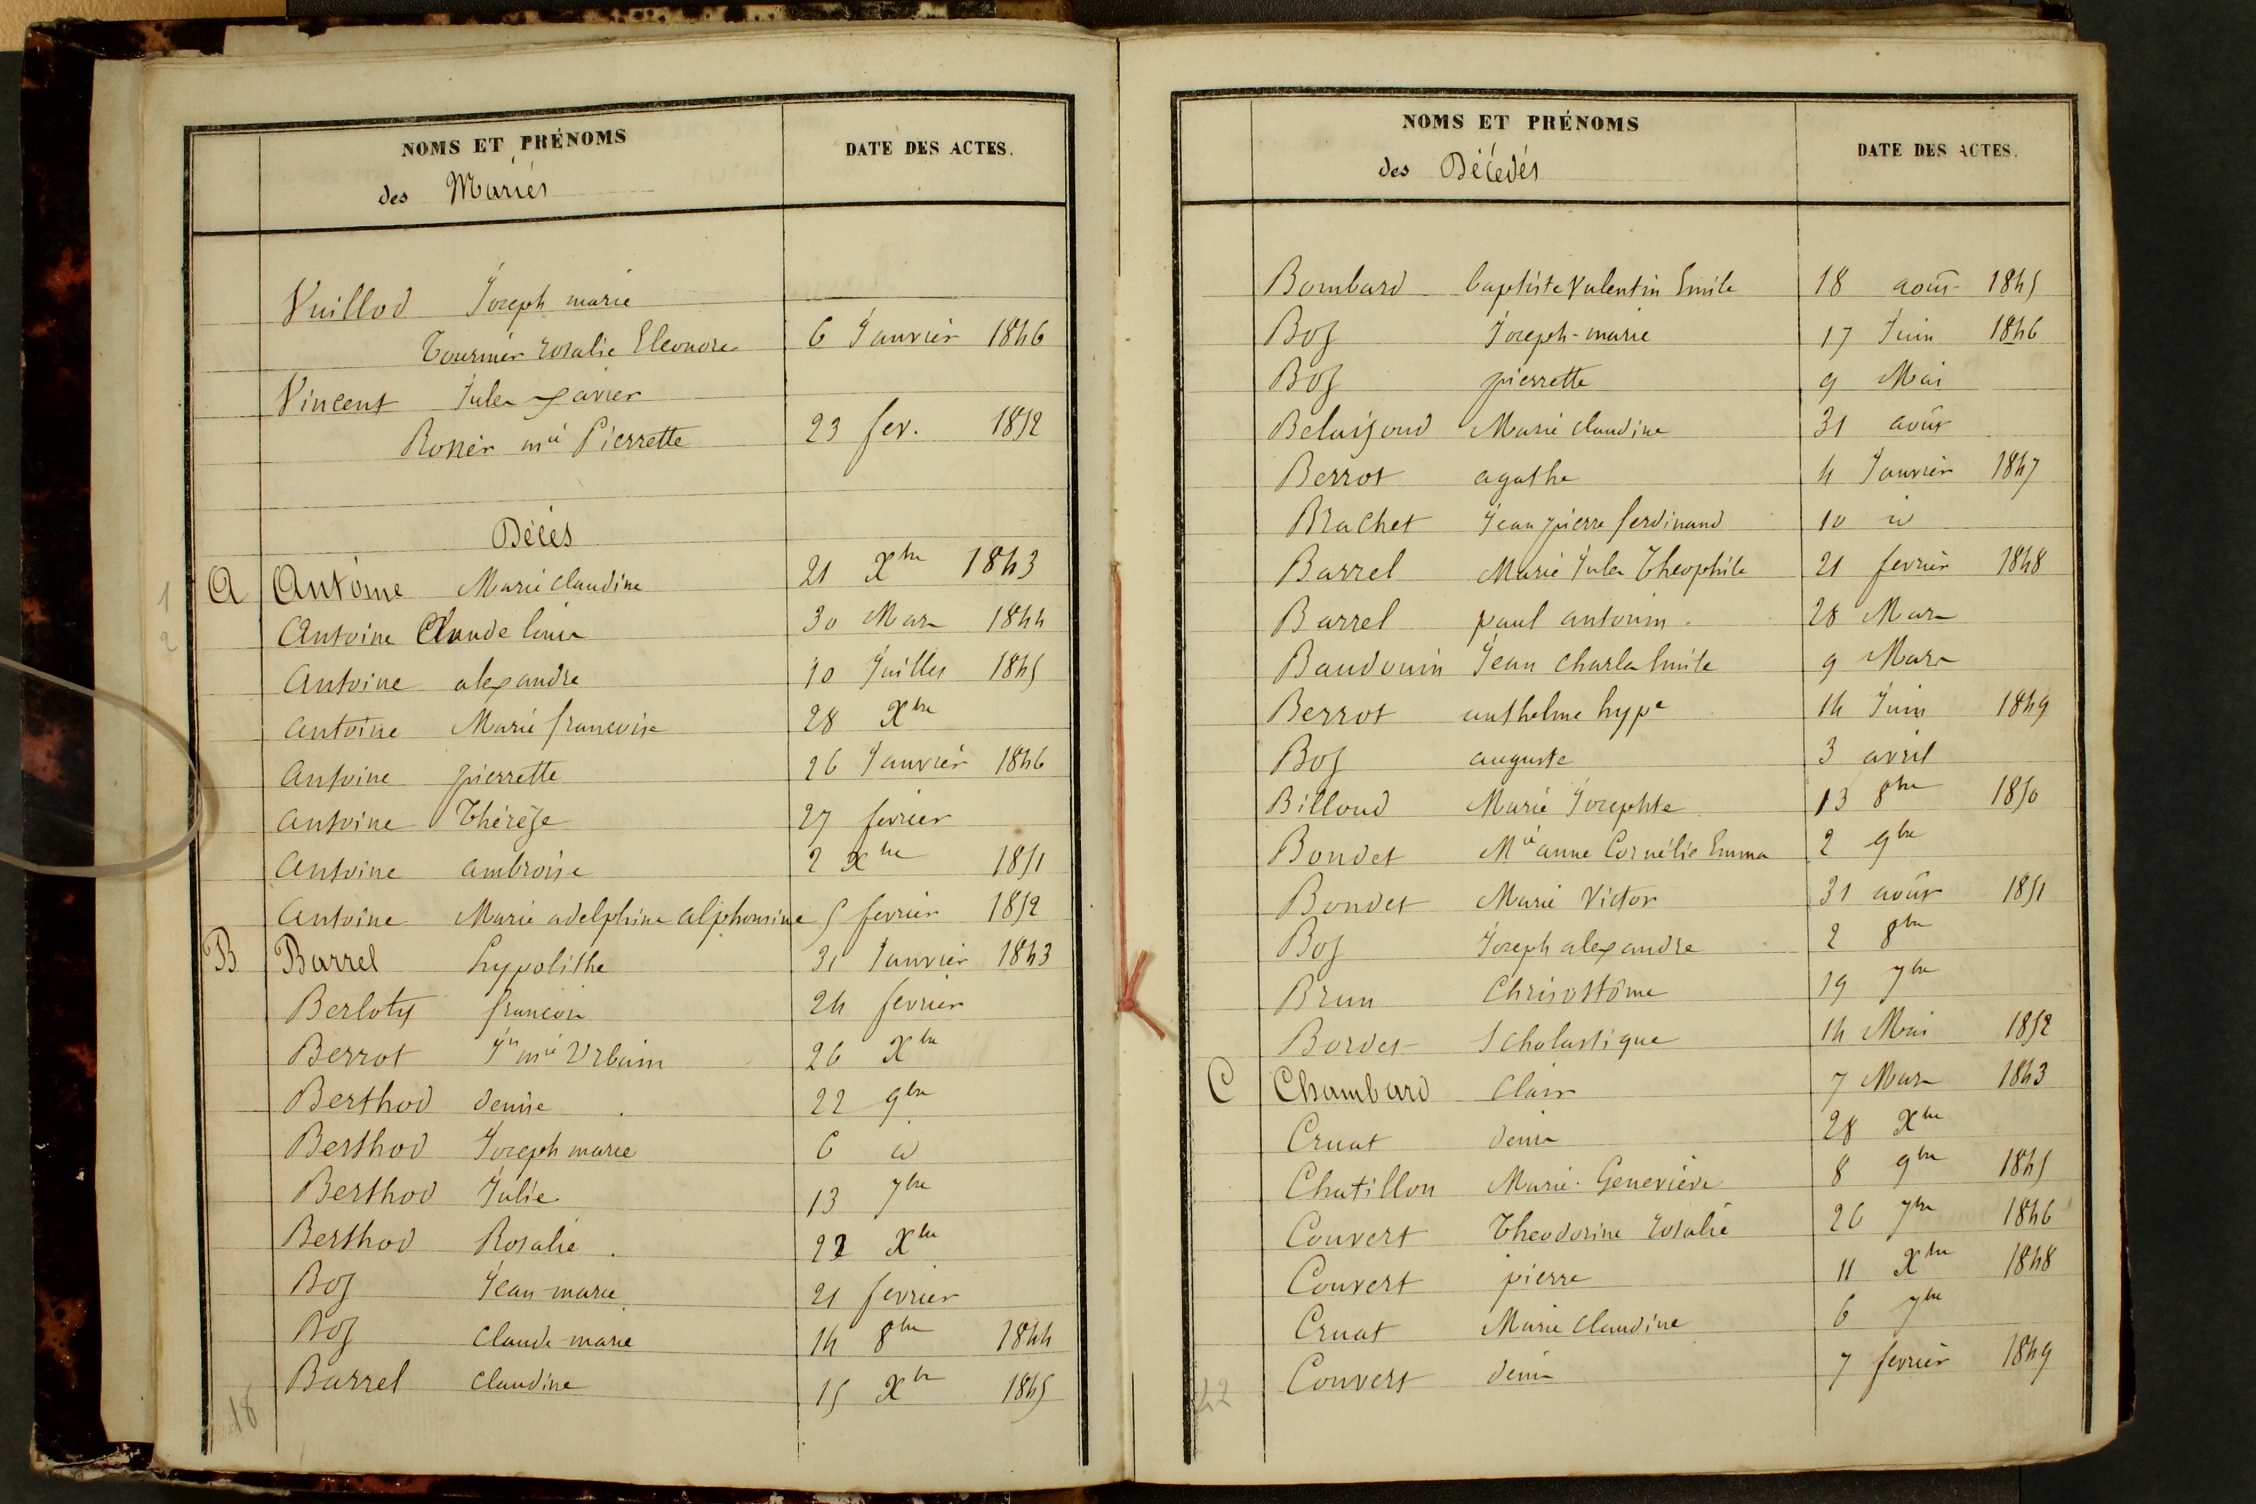 NOMS ET PRÉNOMS
des Mariés
DATE DES ACTES.
Vuillod Joseph marie
Tournier rosalie Eleonore 6 Janvier 1846
Vincent Jules xavier
Rosier mie Pierrette 23 fev. 1852
Décès
1 A Antoine Marie Claudine 21 Xbre 1843
2 Antoine Claude louis 30 Mars 1844
Antoine alexandre 10 Juillet 1845
Antoine Marie francoise 28 Xbre
Antoine pierrette 26 Janvier 1846
Antoine Thérèse 27 fevrier
Antoine ambroise 2 Xbre 1851
Antoine Marie adelphine alphonsine 5 fevrier 1852
B Barrel hypolithe 31 Janvier 1843
Berloty francois 24 fevrier
Berrot Jn mie Urbain 26 Xbre
Berthod denise 22 9bre
Berthod Joseph marie 6 id
Berthod Julie 13 7bre
Berthod Rosalie 22 Xbre
Boz Jean-marie 21 fevrier
Boz Claude marie 14 8bre 1844
Barrel Claudine 15 Xbre 1845
18
NOMS ET PRÉNOMS
des Décédés
DATE DES ACTES.
Bombard baptiste Valentin Emile 18 août 1845
Boz Joseph-marie 17 Juin 1846
Boz pierrette 9 Mai
Belaisoud Marie Claudine 31 août
Berrot agathe 4 Janvier 1847
Brachet Jean pierre ferdinand 10 id
Barrel Marie Jules Theophile 21 fevrier 1848
Barrel paul antonin 28 Mars
Baudouin Jean Charles Emile 9 Mars
Berrot anthelme hypte 14 Juin 1849
Boz auguste 3 avril
Billoud Marie Josephte 13 8bre 1850
Bondet Mie anne Cornélie Emma 2 9bre
Bondet Marie Victor 31 août 1851
Boz Joseph alexandre 2 8bre
Brun Chrisostôme 19 7bre
Bordet Scholastique 14 Mai 1852
C Chambard Clair 7 Mars 1843
Cruat denis 28 Xbre
Chatillon Marie-Geneviève 8 9bre 1845
Couvert Theodorine rosalie 26 7bre 1846
Couvert pierre 11 Xbre 1848
Cruat Marie Claudine 6 7bre
Couvert denis 7 fevrier 1849
22